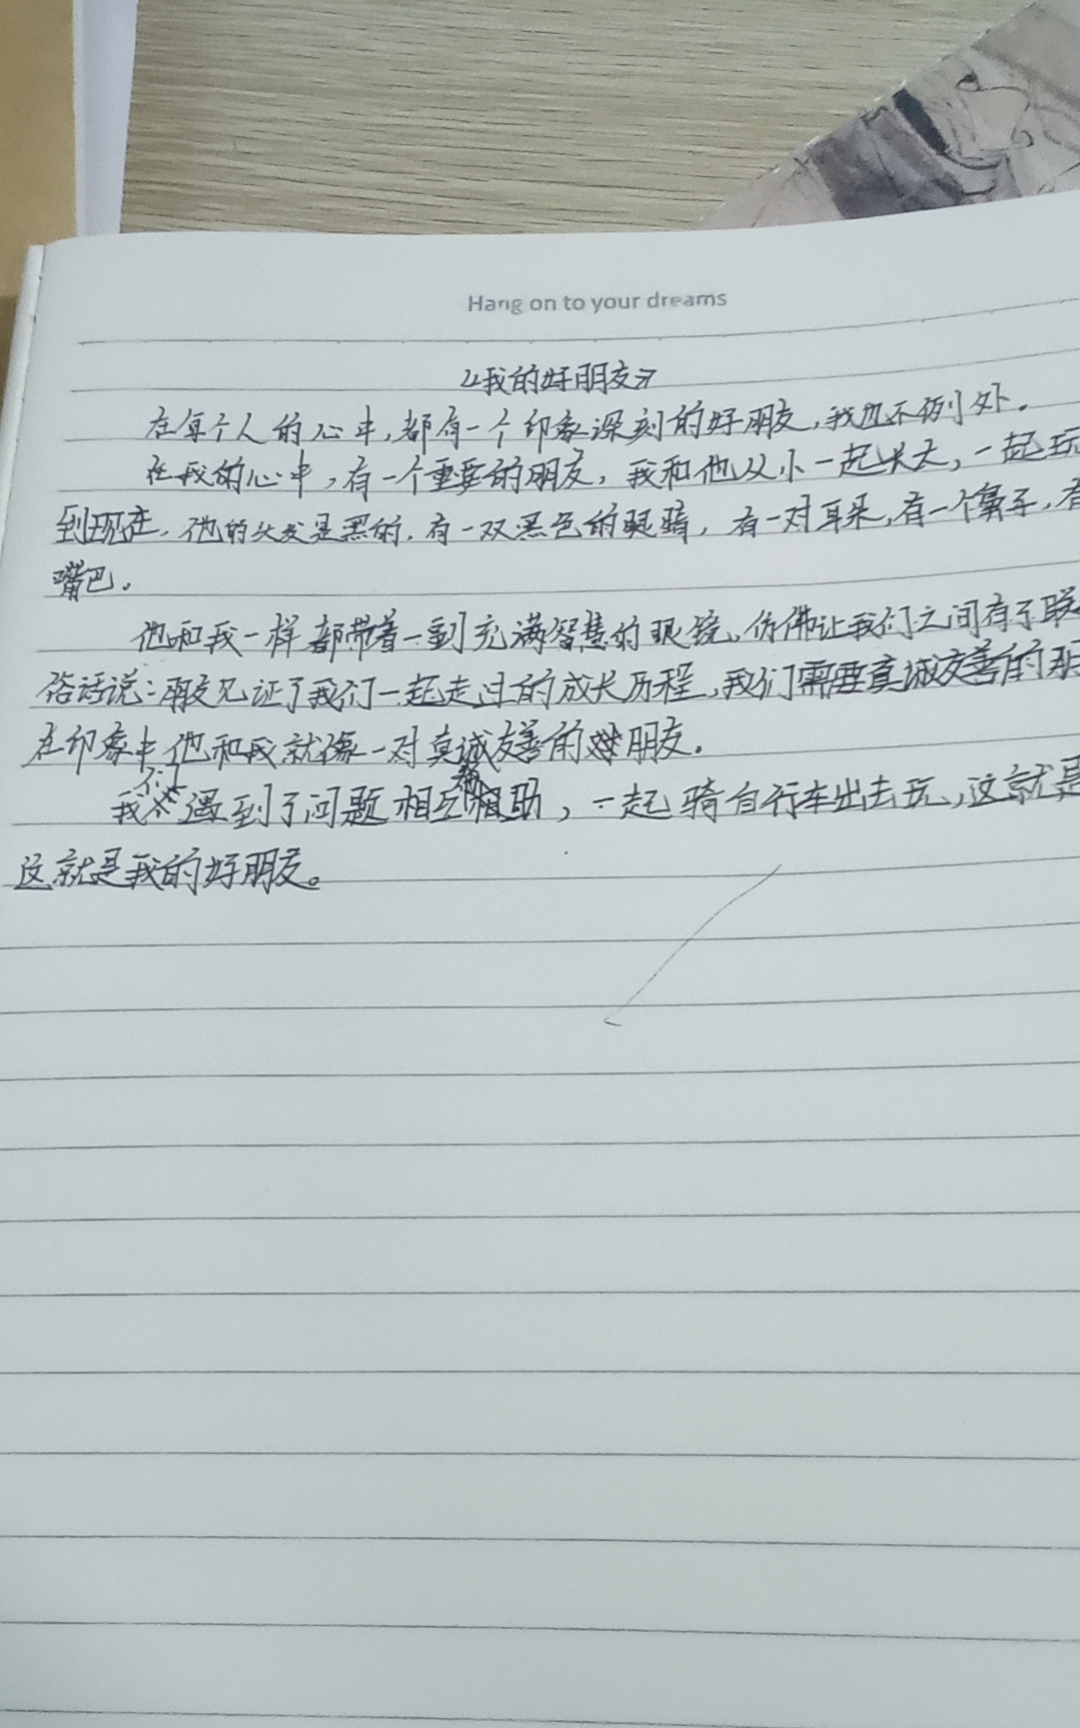 Hang on to your dreams
《我的好朋友》
在每个人的心中,都有一个印象深刻的好朋友,我也不例外。
在我的心中,有一个重要的朋友,我和他从小一起长大,一起玩
到现在,他的头发是黑的,有一双黑色的眼睛,有一对耳朵,有一个鼻子,有
嘴巴。
他和我一样都带着一副充满智慧的眼镜,仿佛让我们之间有了联
俗话说:朋友见证了我们一起走过的成长历程,我们需要真诚友善的朋
在印象中他和我就像一对真诚友善的好朋友.
我们遇到了问题相互帮助,一起骑自行车出去玩,这就是
这就是我的好朋友。